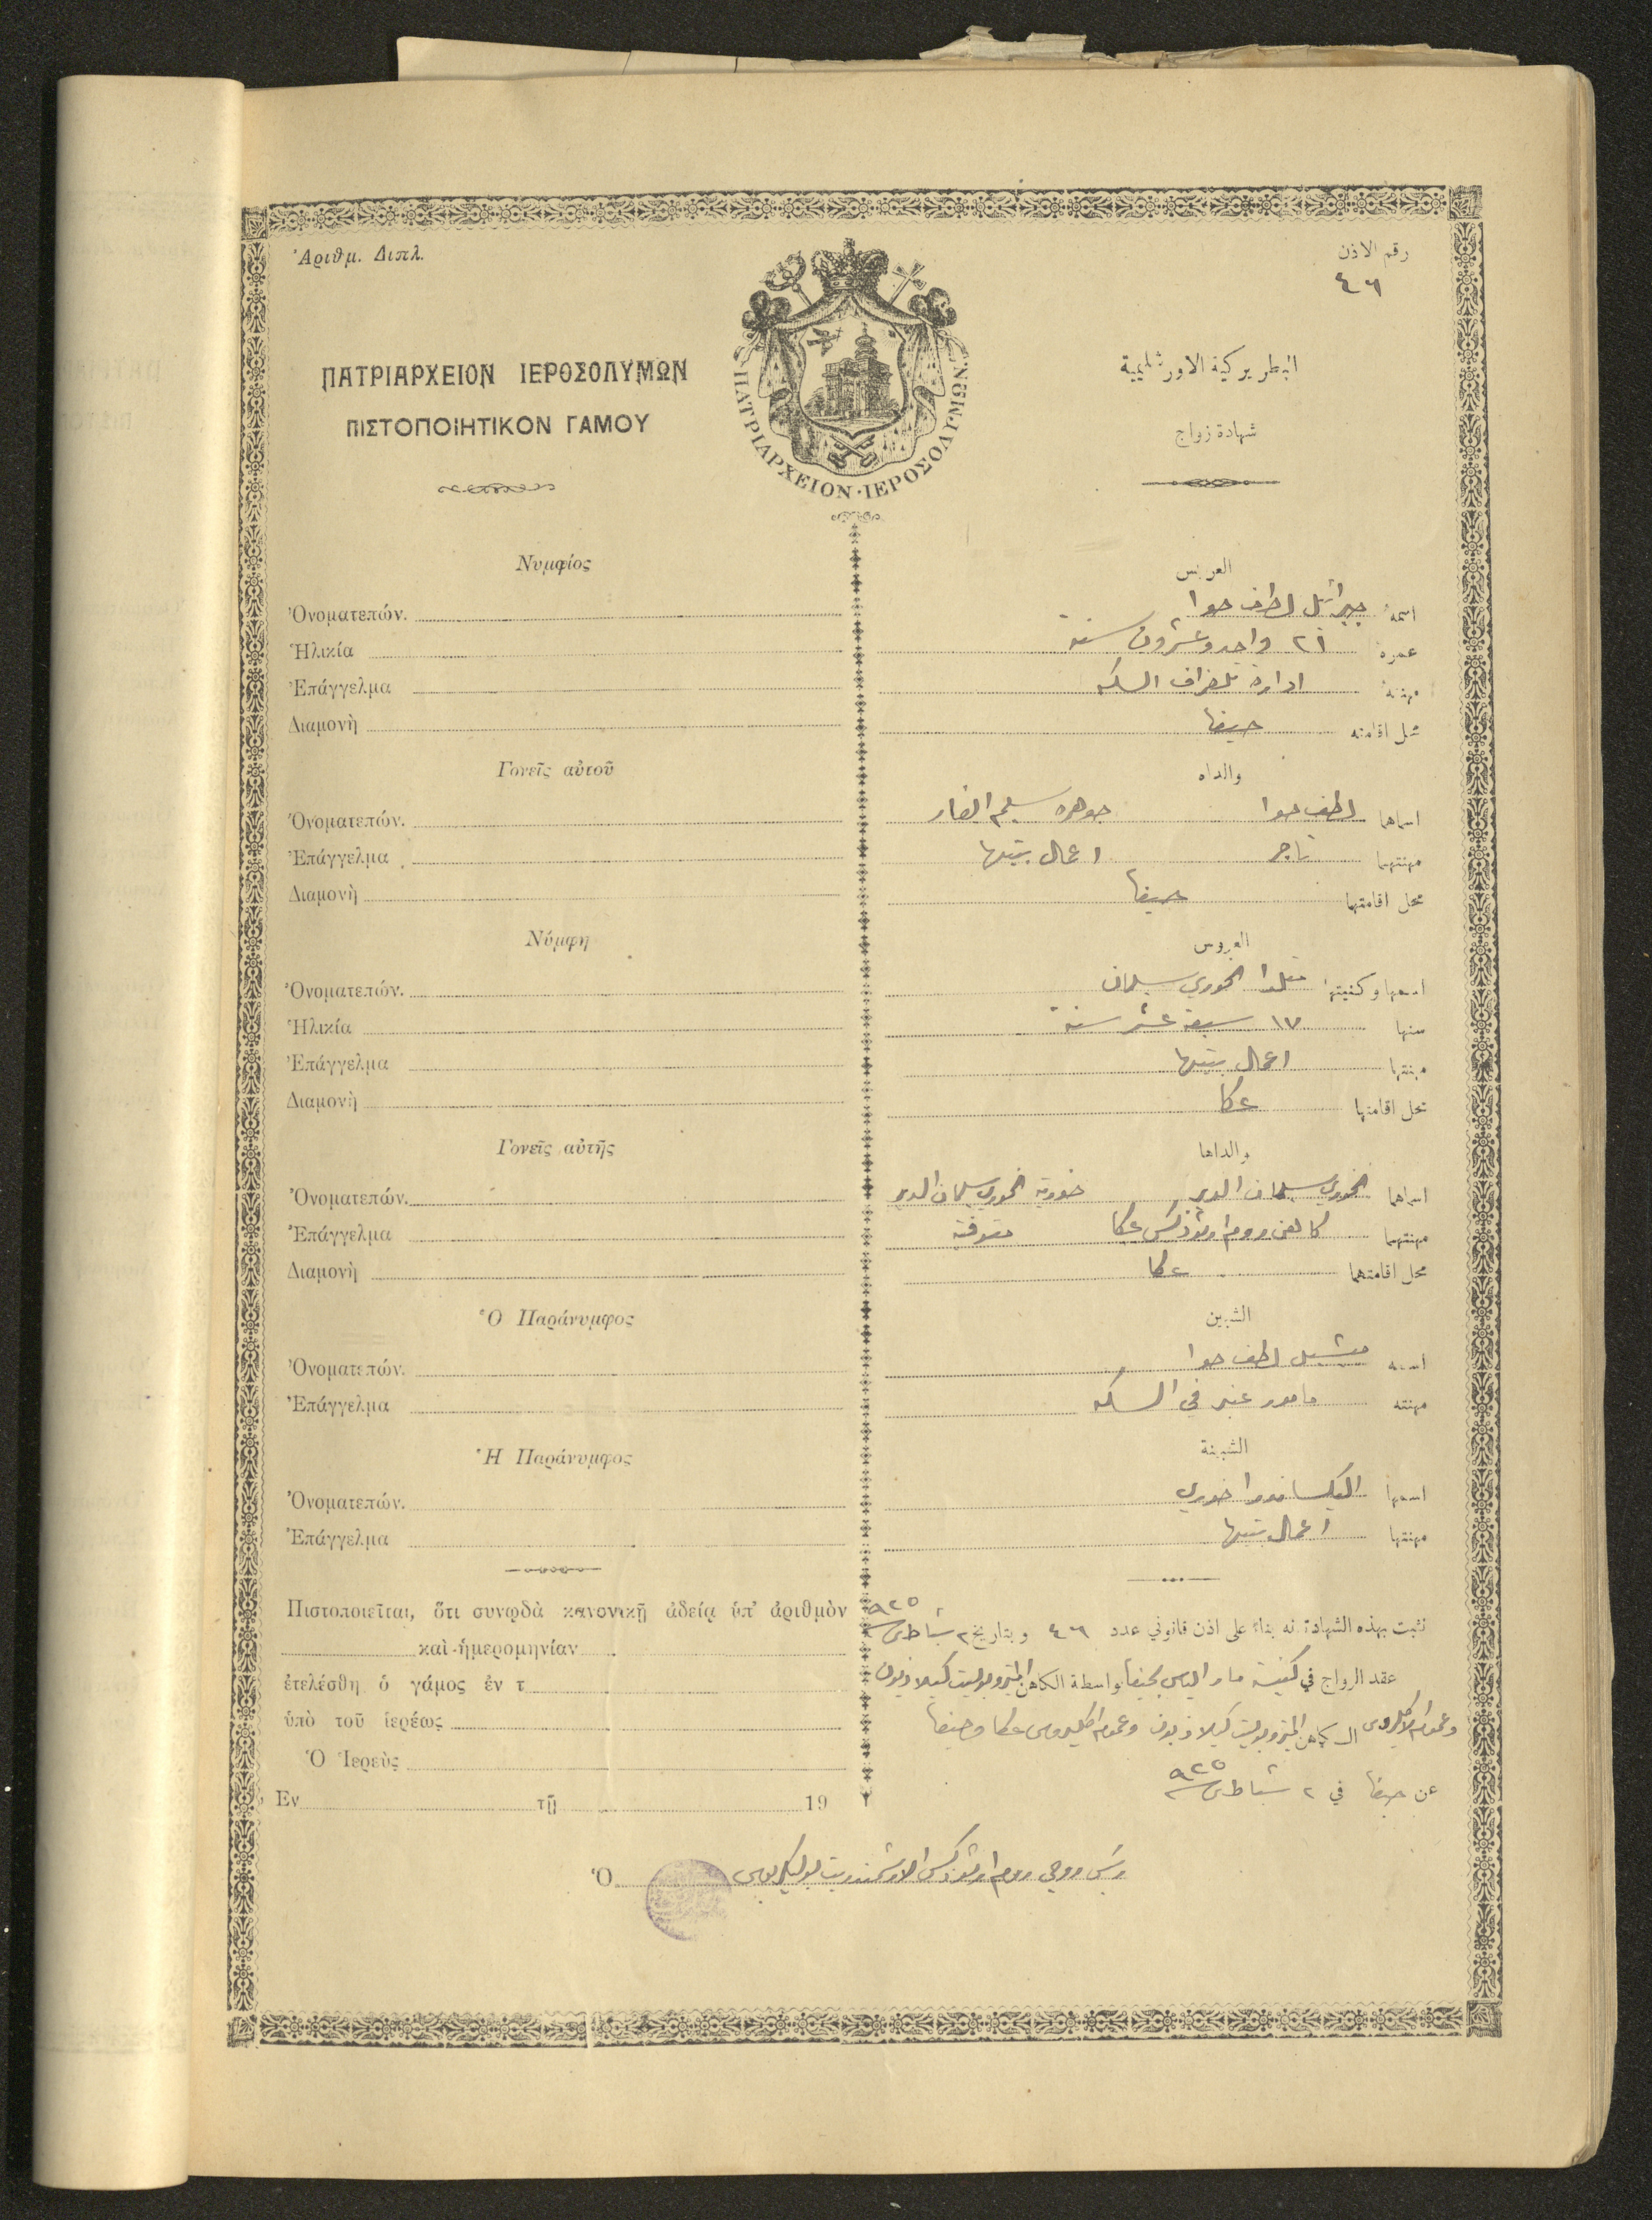 Ἀριθμ. Διπλ.
رقم الاذن
٤٦
ΠΑΤΡΙΑΡΧΕΙΟΝ ΙΕΡΟΣΟΛΥΜΩΝ
ΠΙΣΤΟΠΟΙΗΤΙΚΟΝ ΓΑΜΟΥ
ΠΑΤΡΙΑΡΧΕΙΟΝ·ΙΕΡΟΣΟΛΥΜΩΝ
البطريركية الاورشليمية
شهادة زواج
Νυμφίος
Ὀνοματεπών.
Ἡλικία
Ἐπάγγελμα
Διαμονὴ
Γονεῖς αὐτοῦ
Ὀνοματεπών.
Ἐπάγγελμα
Διαμονὴ
Νύμφη
Ὀνοματεπών.
Ἡλικία
Ἐπάγγελμα
Διαμονὴ
Γονεῖς αὐτῆς
Ὀνοματεπών.
Ἐπάγγελμα
Διαμονὴ
Ὁ Παράνυμφος
Ὀνοματεπών.
Ἐπάγγελμα
Ἡ Παράνυμφος
Ὀνοματεπών.
Ἐπάγγελμα
Πιστοποιεῖται, ὅτι συνῳδὰ κανονικῇ ἀδείᾳ ὑπ' ἀριθμὸν
καὶ ἡμερομηνίαν
ἐτελέσθη ὁ γάμος ἐν τ
ὑπὸ τοῦ ἱερέως
Ὁ Ἱερεὺς
Ἐν τῇ 19
العريس
اسمه جبرائيل لطف حوا
عمره ٢١ واحد وعشرون سنة
مهنته ادارة تلغراف السكه
محل اقامته حيفا
والداه
اسماهما لطف حوا جوهره سليم الفار
مهنتهما تاجر اعمال بيتها
محل اقامتهما حيفا
العروس
اسمها وكنيتها الخوري سليمان
سنها ١٧ سبعة عشر سنة
مهنتها اعمال بيتها
محل اقامتها عكا
والداها
اسماهما الخوري سليمان خورية الخوري سليمان
مهنتهما كاهن روم ارثوذكس عكا متوفية
محل اقامتهما عكا
الشبين
اسمه ميشيل لطف حوا
مهنته مامور عنبر في السكه
الشبينة
اسمها اليكساندرا خوري
مهنتها اعمال بيتها
نثبت بهذه الشهادة انه بناء على اذن قانوني عدد ٤٦ وبتاريخ ٢ شباط سنة ٩٢٥
عقد الزواج في كنيسة مار الياس بحيفا بواسطة الكاهن المتروبوليت كيلاذيون
وعموم الاكليروس الكاهن المتروبوليت كيلاذيون وعموم اكليروس عكا وحيفا
عن حيفا في ٢ شباط سنة ٩٢٥
Ὁ رئيس روحي روم ارثوذكس الارشمندريت